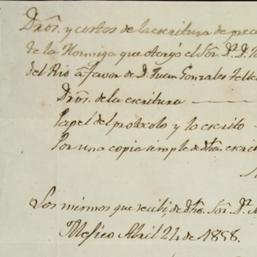 Dros. y costos de la escritura de
de la Hormiga que otorgó el Sor. D. D.
del Rio a favor de D. Juan Gonzales
Dros. de la escritura
Papel del protocolo y lo escrito
Por una copia simple de dha. escri

Los mismos que recibi de dho. Sor. D.
Mexico Abril 24 de 1858.